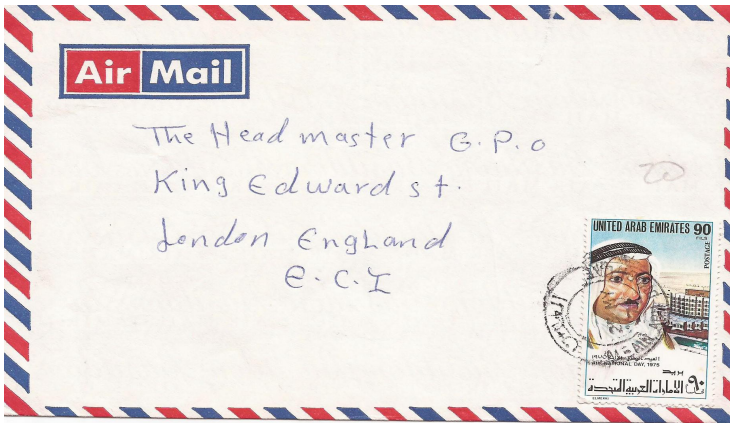 Air Mail
The Head master G.P.O
King Edward st.
London England
E.C.I
UNITED ARAB EMIRATES 90
FILS
POSTAGE
AL-AIN
NATIONAL DAY, 1975
بريد
الامارات العربية المتحدة
٩٠